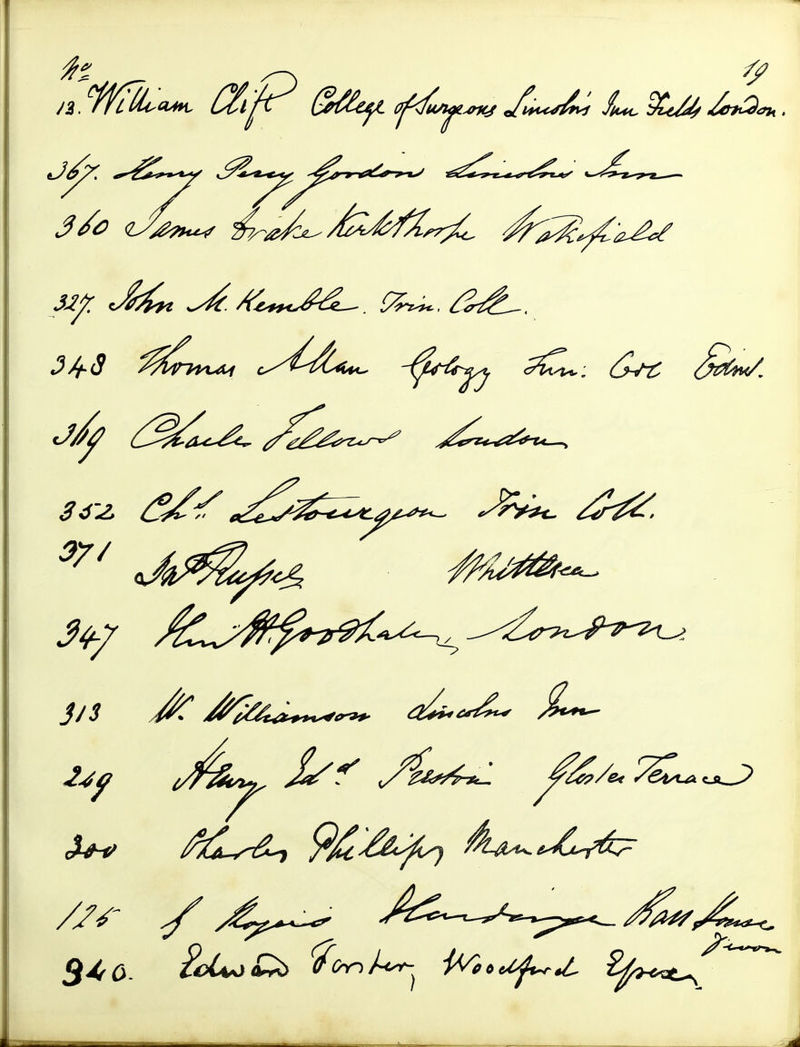 No 19
13. William Clift College of Surgeons Lincoln's Inn Fields London.
367. Henry Percy Gordon Lincolns Inn
360 James Drake Kirkthorpe Wakefield
327. John M. Kemble. Trin. Coll.
348 Thomas Allan Geology Sun: Coll Edinr.
369 Charles Fellows London
352 Chs. Lestourgeon Trin Coll.
371 Whittlesea
347 Goodhale, London.
313 W. Williamson Lincolns Inn
249 Henry Edd. Preston Gloster Terrace
300 Charles Phillips Manchester
125 Rogers House
Devon
340. Edward Forster, Woodford Essex.